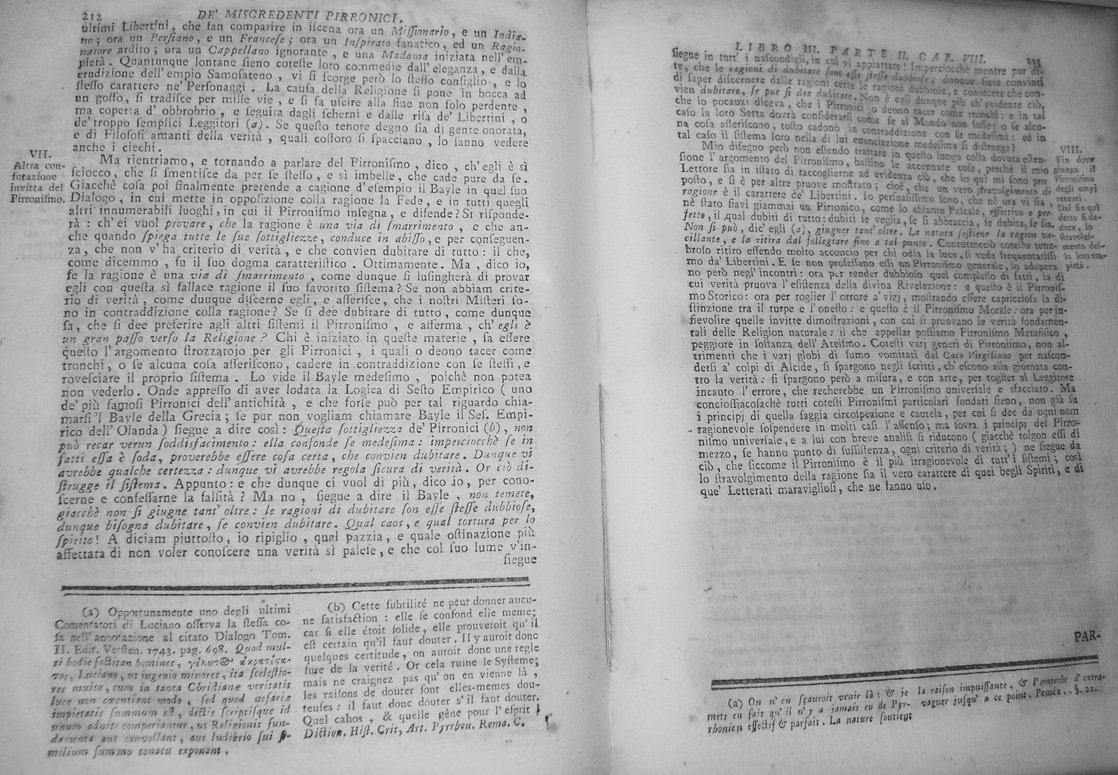 212
DE' MISCREDENTI PIRRONICI.
ultimi Libertini, che fan comparire in iscena ora un Missionario, e un India-
no; ora un Persiano, e un Francese; ora un Inspirato fanatico, ed un Ragio-
natore ardito; ora un Cappellano ignorante, e una Madama iniziata nell'em-
pietà. Quantunque lontane sieno coteste loro commedie dall'eleganza, e dalla
erudizione dell'empio Samosateno, vi si scorge però lo stesso consiglio, e lo
stesso carattere ne' Personaggi. La causa della Religione si pone in bocca ad
un goffo, si tradisce per mille vie, e si fa uscire alla fine non solo perdente,
ma coperta d'obbrobrio, e seguita dagli scherni e dalle risa de' Libertini, o
de' troppo semplici Leggitori (a). Se questo tenore degno sia di gente onorata,
e di Filosofi amanti della verità, quali costoro si spacciano, lo sanno vedere
anche i ciechi.
VII.
Altra con-
futazione
invitta del
Pirronismo.
Ma rientriamo, e tornando a parlare del Pirronismo, dico, ch'egli è sì
sciocco, che si smentisce da per se stesso, e sì imbelle, che cade pure da se.
Giacchè cosa poi finalmente pretende a cagione d'esempio il Bayle in quel suo
Dialogo, in cui mette in opposizione colla ragione la Fede, e in tutti quegli
altri innumerabili luoghi, in cui il Pirronismo insegna, e difende? Si risponde-
rà: ch'ei vuol provare, che la ragione è una via di smarrimento, e che an-
che quando spiega tutte le sue sottigliezze, conduce in abisso, e per conseguen-
za, che non v'ha criterio di verità, e che convien dubitare di tutto: il che,
come dicemmo, fu il suo dogma caratteristico. Ottimamente. Ma, dico io,
se la ragione è una via di smarrimento, come dunque si lusingherà di provar
egli con questa sì fallace ragione il suo favorito sistema? Se non abbiam crite-
rio di verità, come dunque discerne egli, e asserisce, che i nostri Misteri so-
no in contraddizione colla ragione? Se si dee dubitare di tutto, come dunque
sa, che si dee preferire agli altri sistemi il Pirronismo, e afferma, ch'egli è
un gran passo verso la Religione? Chi è iniziato in queste materie, sa essere
questo l'argomento strozzatojo per gli Pirronici, i quali o deono tacer come
tronchi, o se alcuna cosa asseriscono, cadere in contraddizione con se stessi, e
rovesciare il proprio sistema. Lo vide il Bayle medesimo, poichè non potea
non vederlo. Onde appresso di aver lodata la Logica di Sesto Empirico (uno
de' più famosi Pirronici dell'antichità, e che forse può per tal riguardo chia-
marsi 'l Bayle della Grecia; se pur non vogliam chiamare Bayle il Ses. Empi-
rico dell'Olanda) siegue a dire così: Questa sottigliezza de' Pirronici (b), non
può recar verun soddisfacimento: ella confonde se medesima: imperciocchè se in
fatti essa è soda, proverebbe essere cosa certa, che convien dubitare. Dunque vi
avrebbe qualche certezza: dunque vi avrebbe regola sicura di verità. Or ciò di-
strugge il sistema. Appunto: e che dunque ci vuol di più, dico io, per cono-
scerne e confessarne la falsità? Ma no, siegue a dire il Bayle, non temete,
giacchè non si giugne tant' oltre: le ragioni di dubitare son esse stesse dubbiose,
dunque bisogna dubitare, se convien dubitare. Qual caos, e qual tortura per lo
spirito! A diciam piuttosto, io ripiglio, qual pazzia, e quale ostinazione più
affettata di non voler conoscere una verità sì palese, e che col suo lume v'in-
siegue
(a) Opportunamente uno degli ultimi
Comentatori di Luciano osserva la stessa co-
sa nell'annotazione al citato Dialogo Tom.
II. Edit. Versten. 1743. pag. 698. Quod mul-
ti hodie factitan homines,
Luciano, ut ingenio minores, ita scelestio-
res multo, cum in tanta Christianæ veritatis
luce non cæcutiant modo, sed quod nefariæ
impietatis summum est, dictis scriptisque id
unum admisi comperiantur, ut Religionis fun-
damenta aut convellant, aut ludibrio sui si-
milium summo conatu exponant.
(b) Cette subtilité ne peut donner aucu-
ne satisfaction: elle se confond elle meme;
car si elle étoit solide, elle prouveroit qu'il
est certain qu'il faut douter. Il y auroit donc
quelques certitude, on auroit donc une regle
sure de la verité. Or cela ruine le Systeme;
mais ne craignez pas qu'on en vienne là,
les raisons de douter sont elles-memes dou-
teuses: il faut donc douter s'il faut douter.
Quel cahos, & quelle gêne pour l'esprit!
Diction. Hist. Crit, Art. Pyrrhon. Rema. C.
LIBRO III. PARTE II. CAP. VIII.
213
siegue in tutt' i nascondigli, in cui vi appiattate! Imperciocchè mentre pur di-
te, che le ragioni di dubitare sono esse stesse dubbiose, dunque siete convinti
di saper discernere dalle ragioni certe le ragioni dubbiose, e conoscete che con-
vien dubitare, se pur si dee dubitare. Non è egli dunque più ch'evidente ciò,
che io pocanzi diceva, che i Pirronici o deono tacer come tronchi: e in tal
caso la loro Setta dovrà considerarsi come se al Mondo non fosse: o se alcu-
na cosa asseriscono, tosto cadono in contraddizione con se medesimi: ed in
tal caso il sistema loro nella di lui enunciazione medesima si distrugge?
Mio disegno però non essendo trattare in questo luogo colla dovuta esten-
sione l'argomento del Pirronismo, bastino le accennate cose, perchè il mio
Lettore sia in istato di raccoglierne ad evidenza ciò, che io qui mi sono pro
posto, e si è per altre pruove mostrato; cioè, che un vero stravolgimento di
ragione è il carattere de' Libertini. Io persuasissimo sono, che nè ora vi sia,
nè stato siavi giammai un Pirronico, come lo chiama Pascale, effettivo e per-
fetto, il qual dubiti di tutto: dubiti se veglia, se si abbraccia, se dubita, se sia.
Non si può, dic' egli (a), giugner tant' oltre. La natura sostiene la ragion va-
cillante, e la ritira dal follegiare sino a tal punto. Contuttociò cotesto tene-
broso ritiro essendo molto acconcio per chi odia la luce, si vede frequentatissi
mo da' Libertini. E se non professano essi un Pirronismo generale, lo adopera
no però negl' incontri: ora per render dubbioso quel complesso di fatti, la di
cui verità pruova l'esistenza della divina Rivelazione: e questo è il Pirronis-
mo Storico: ora per toglier l'errore a' vizj, mostrando essere capricciosa la di-
stinzione tra il turpe e l'onesto: e questo è il Pirronismo Morale: ora per in-
fievolire quelle invitte dimostrazioni, con cui si pruovano le verità fondamen-
tali delle Religion naturale: il che appellar possiamo Pirronismo Metafisico,
peggiore in sostanza dell'Ateismo. Cotesti varj generi di Pirronismo, non al-
trimenti che i varj globi di fumo vomitati dal Caco Virgiliano per nascon-
dersi a' colpi di Alcide, si spargono negli scritti, ch'escono alla giornata con-
tro la verità: si spargono però a misura, e con arte, per toglier al Leggitore
incauto l'errore, che recherebbe un Pirronismo universale e sfacciato. Ma
conciossiacosachè tutti cotesti Pirronismi particolari fondati sieno, non già sa
i principj di quella saggia circospezione e cautela, per cui si dee da ogni uom
ragionevole sospendere in molti casi l'assenso; ma sovra i principj del Pirro-
nismo universale, e a lui con breve analisi si riducono (giacchè tolgon essi di
mezzo, se hanno punto di sussistenza, ogni criterio di verità;) ne siegue da
ciò, che siccome il Pirronismo è il più irragionevole di tutt' i sistemi; così
lo stravolgimento della ragione sia il vero carattere di quei begli Spiriti, e di
que' Letterati maravigliosi, che ne fanno uso.
VIII.
Fin dove
giunga il
Pirronismo
degli empj
recenti.
Dal fin qui
detto si de-
duce, lo
stravolgi-
mento del-
la loro em-
pietà.
PAR-
(a) On n'en sçauroit venir là: & je
mets en fait qu'il n'y a jamais eu de Pyr-
rhonien effectif & parfait. La nature soutient
la raison impuissante, & l'empeche d'extra-
vaguer jusqu'a ce point. Pensée. §. 21.